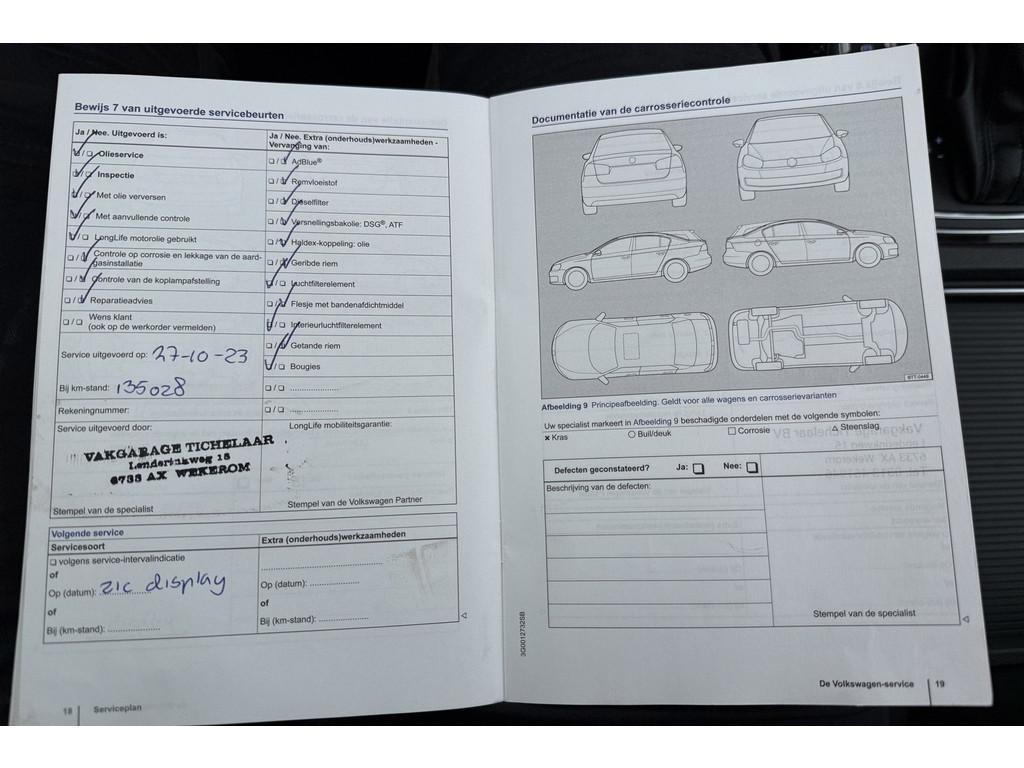 Bewijs 7 van uitgevoerde servicebeurten
Ja / Nee. Uitgevoerd is:
Olieservice
Inspectie
Met olie verversen
Met aanvullende controle
LongLife motorolie gebruikt
Controle op corrosie en lekkage van de aard-
gasinstallatie
Controle van de koplampafstelling
Reparatieadvies
Wens klant
(ook op de werkorder vermelden)
Service uitgevoerd op: 27-10-23
Bij km-stand: 135028
Rekeningnummer:
Service uitgevoerd door:
VAKGARAGE TICHELAAR
Lenderinkweg 15
6733 AX WEKEROM
Stempel van de specialist
Ja / Nee. Extra (onderhouds)werkzaamheden -
Vervanging van:
AdBlue®
Remvloeistof
Dieselfilter
Versnellingsbakolie: DSG®, ATF
Haldex-koppeling: olie
Geribde riem
Luchtfilterelement
Flesje met bandenafdichtmiddel
Interieurluchtfilterelement
Getande riem
Bougies
LongLife mobiliteitsgarantie:
Stempel van de Volkswagen Partner
Volgende service
Servicesoort
volgens service-intervalindicatie
of
Op (datum): zie display
of
Bij (km-stand):
Extra (onderhouds)werkzaamheden
Op (datum):
of
Bij (km-stand):
18 Serviceplan
Documentatie van de carrosseriecontrole
BTT-0448
Afbeelding 9 Principeafbeelding. Geldt voor alle wagens en carrosserievarianten
Uw specialist markeert in Afbeelding 9 beschadigde onderdelen met de volgende symbolen:
× Kras ○ Buil/deuk □ Corrosie △ Steenslag
Defecten geconstateerd? Ja: □ Nee: □
Beschrijving van de defecten:
Stempel van de specialist
3G0012732SB
De Volkswagen-service 19